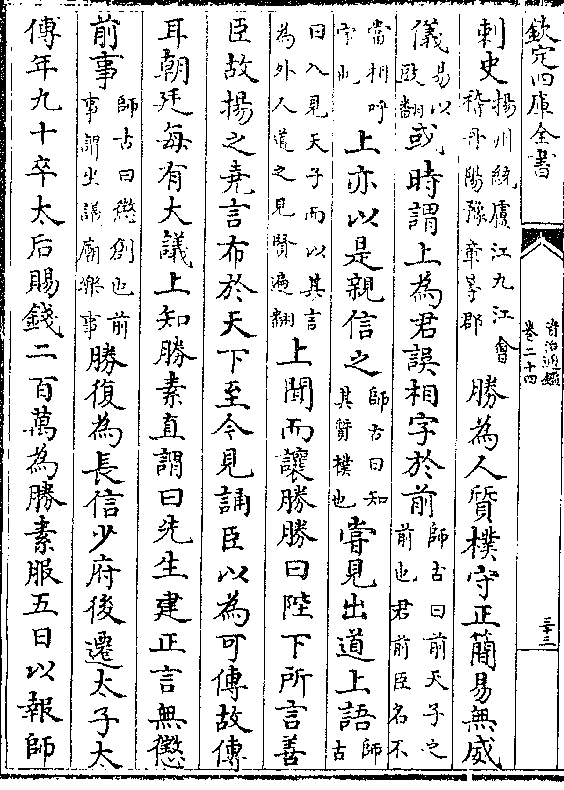 欽定四庫全書
資治通鑑
卷二十四
三十三
刺史揚州統廬江九江會稽丹陽豫章等郡勝為人質樸守正簡易無威
儀易以豉翻或時謂上為君誤相字於前師古曰前天子之前也君前臣名不
當相呼字也上亦以是親信之師古曰知其質樸也嘗見出道上語師古
曰入見天子而以其言為外人道之見賢遍翻上聞而讓勝勝曰陛下所言善
臣故揚之堯言布於天下至今見誦臣以為可傳故傳
耳朝廷每有大議上知勝素直謂曰先生建正言無懲
前事師古曰懲創也前事謂坐議廟樂事勝復為長信少府後遷太子太
傅年九十卒太后賜錢二百萬為勝素服五日以報師